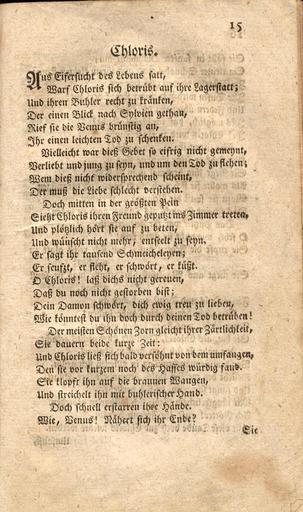 15
Chloris.
Aus Eifersucht des Lebens satt,
Warf Chloris sich betrübt auf ihre Lagerstatt;
Und ihren Buhler recht zu kränken,
Der einen Blick nach Sylvien gethan,
Rief sie die Venus brünstig an,
Ihr einen leichten Tod zu schenken.
Vielleicht war dieß Gebet so eifrig nicht gemeynt,
Verliebt und jung zu seyn, und um den Tod zu flehen;
Wem dieß nicht widersprechend scheint,
Der muß die Liebe schlecht verstehen.
Doch mitten in der größten Pein
Sieht Chloris ihren Freund geputzt ins Zimmer treten,
Und plötzlich hört sie auf zu beten,
Und wünscht nicht mehr, entseelt zu seyn.
Er sagt ihr tausend Schmeicheleyen;
Er seufzt, er fleht, er schwört, er küßt.
O Chloris! laß dichs nicht gereuen,
Daß du noch nicht gestorben bist;
Dein Damon schwört, dich ewig treu zu lieben,
Wie könntest du ihn doch durch deinen Tod betrüben!
Der meisten Schönen Zorn gleicht ihrer Zärtlichkeit,
Sie dauern beide kurze Zeit:
Und Chloris ließ sich bald versöhnt von dem umfangen,
Den sie vor kurzem noch des Hasses würdig fand.
Sie klopft ihn auf die braunen Wangen,
Und streichelt ihn mit buhlerischer Hand.
Doch schnell erstarren ihre Hände.
Wie, Venus! Nähert sich ihr Ende?
Sie